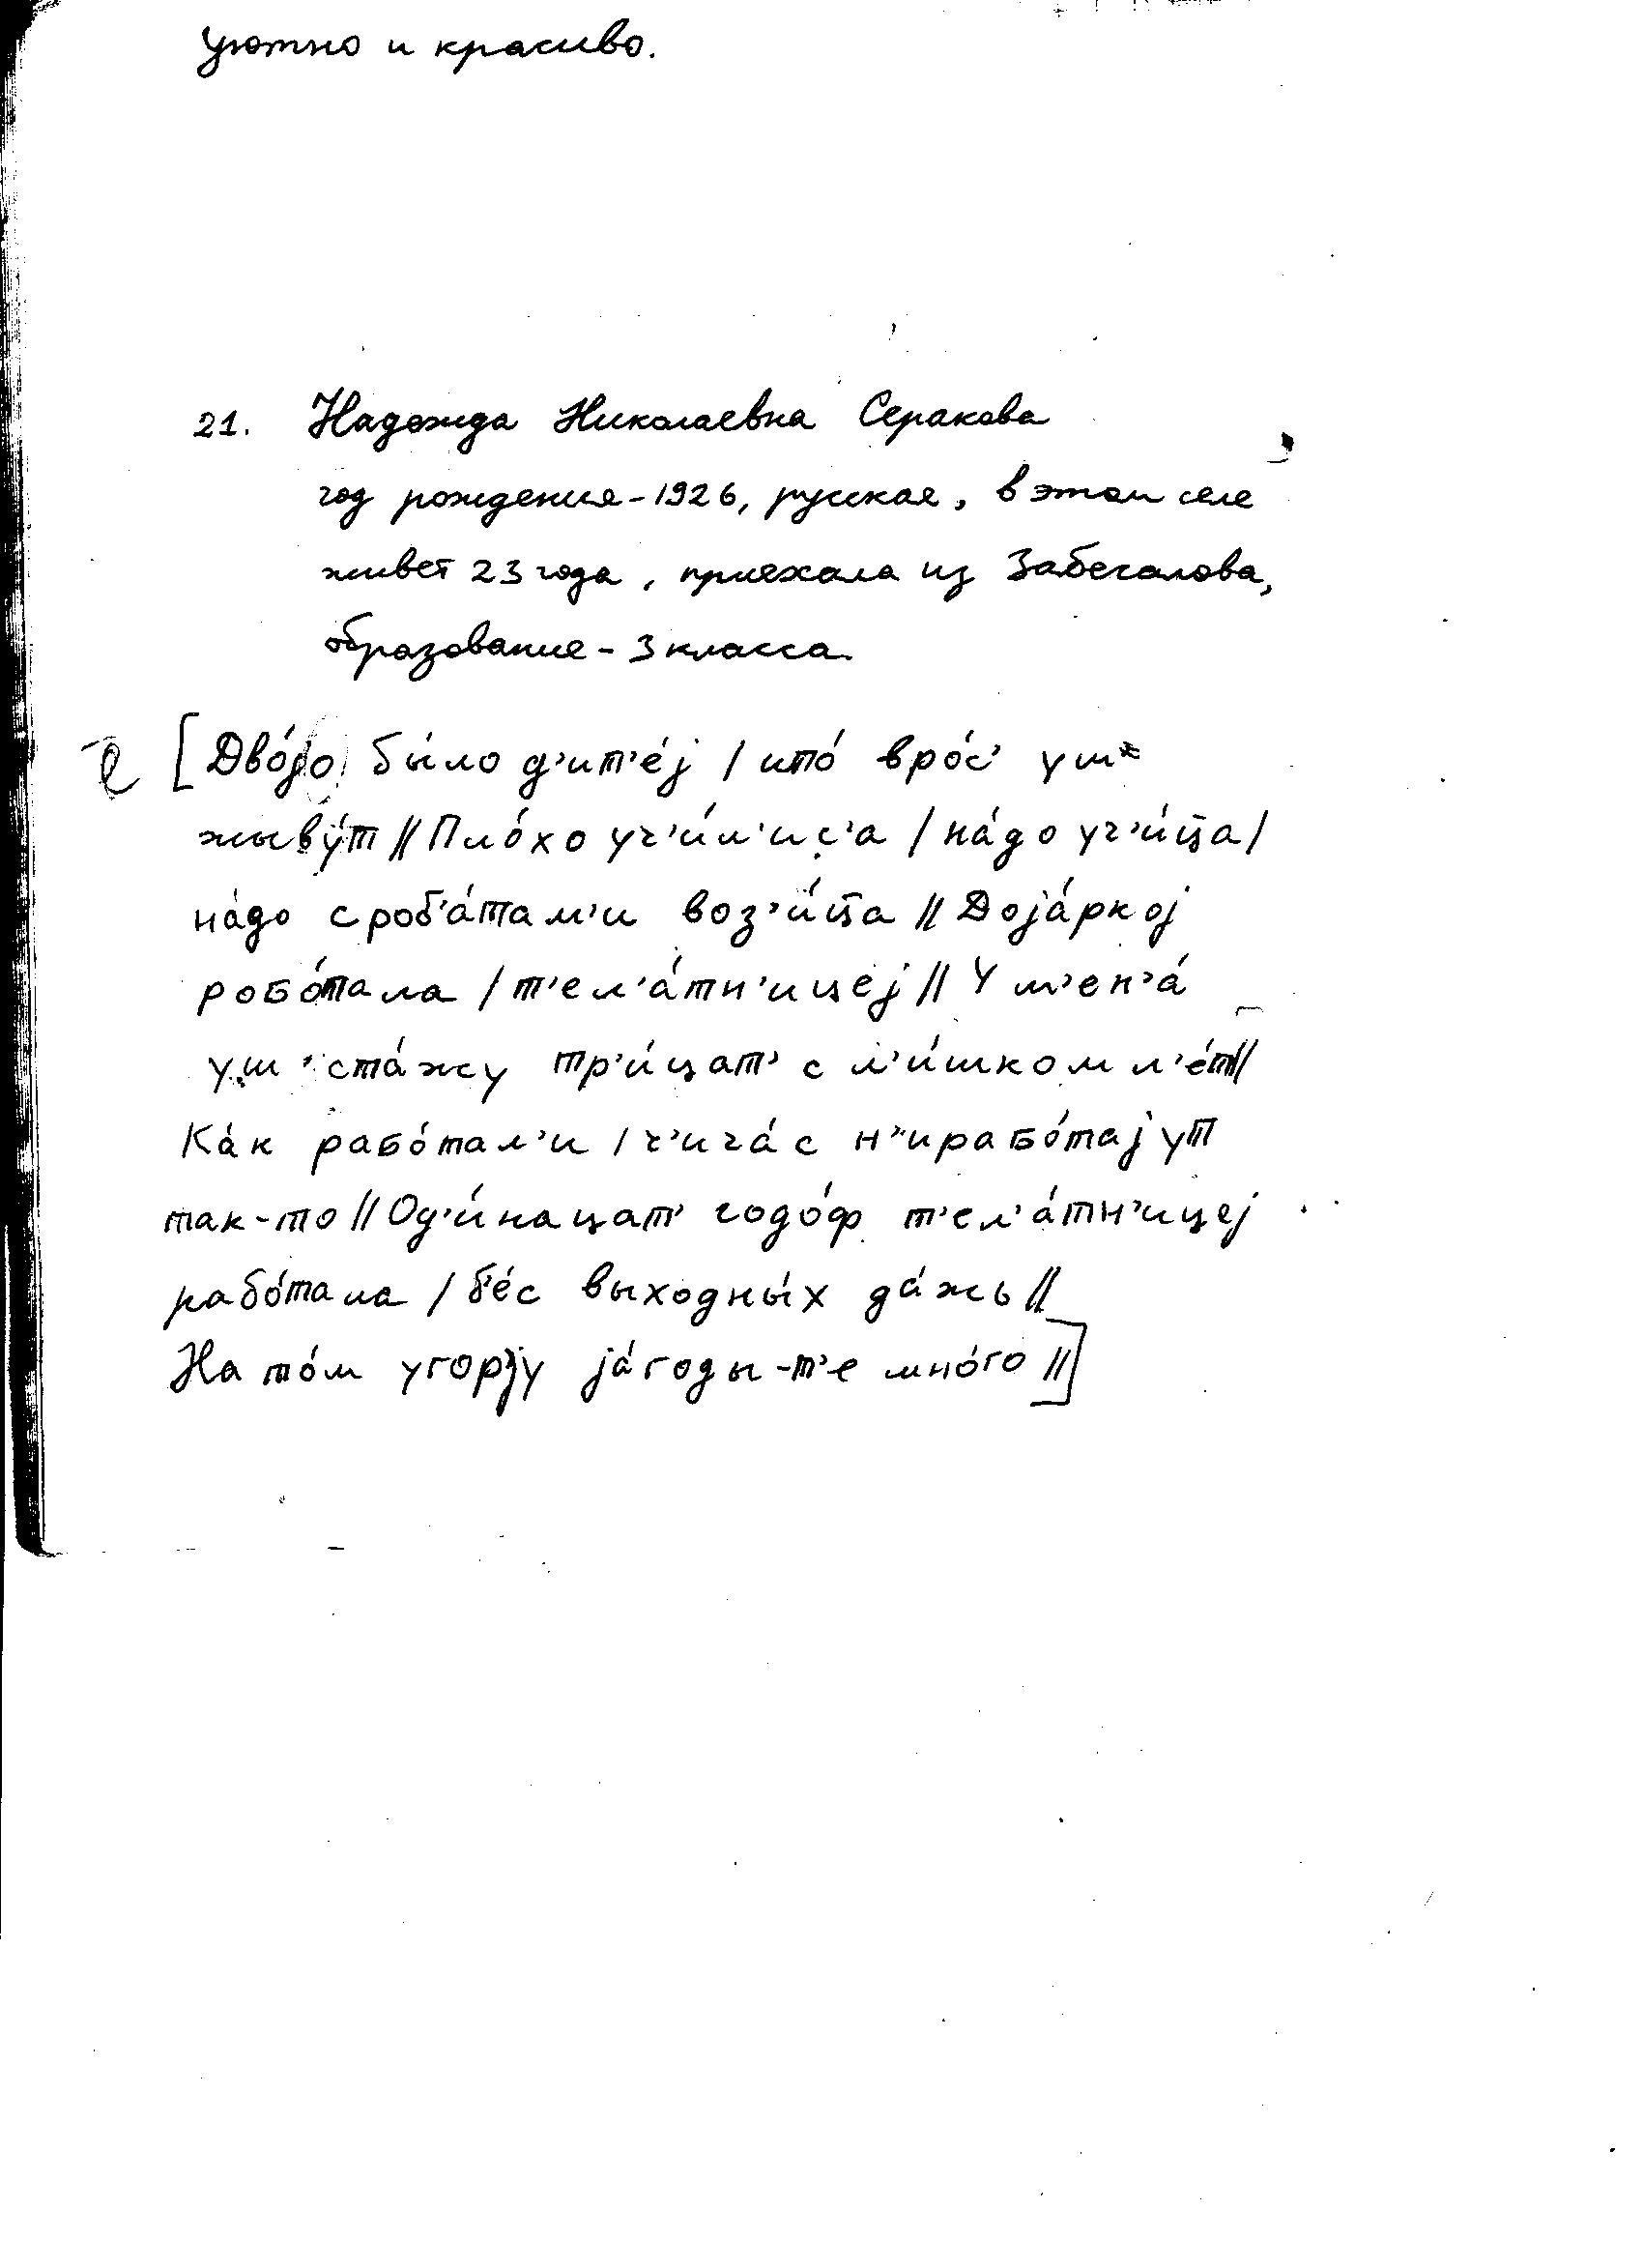 уютно и красиво.
21. Надежда Николаевна Серакова
год рождения - 1926, русская, в этом селе
живет 23 года, приехала из Забегалова,
образование - 3 класса.
[Дво́jо бы́ло д'ит'е́j / ипо́ вро́с' уш
жыву́т // Пло́хо уч'и́л'ис'а / на́до уч'и́ц̅а /
на́до сроб'а́там'и воз'и́ц̅а // Доjа́ркоj
робо́тала / т'ел'а́тн'ицеj // У м'ен'а́
уш ста́жу тр'и́цат' с л'и́шком л'е́т //
Ка́к рабо́тал'и / ч'ича́с н'ирабо́таjут
так-то // Од'и́нацат' годо́ф т'ел'а́тн'ицеj
рабо́тала / б'е́с выходны́х да́жь //
На то́м угорjу jа́годы-т'е мно́го //]